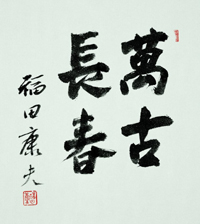 萬古
長春
福田康夫